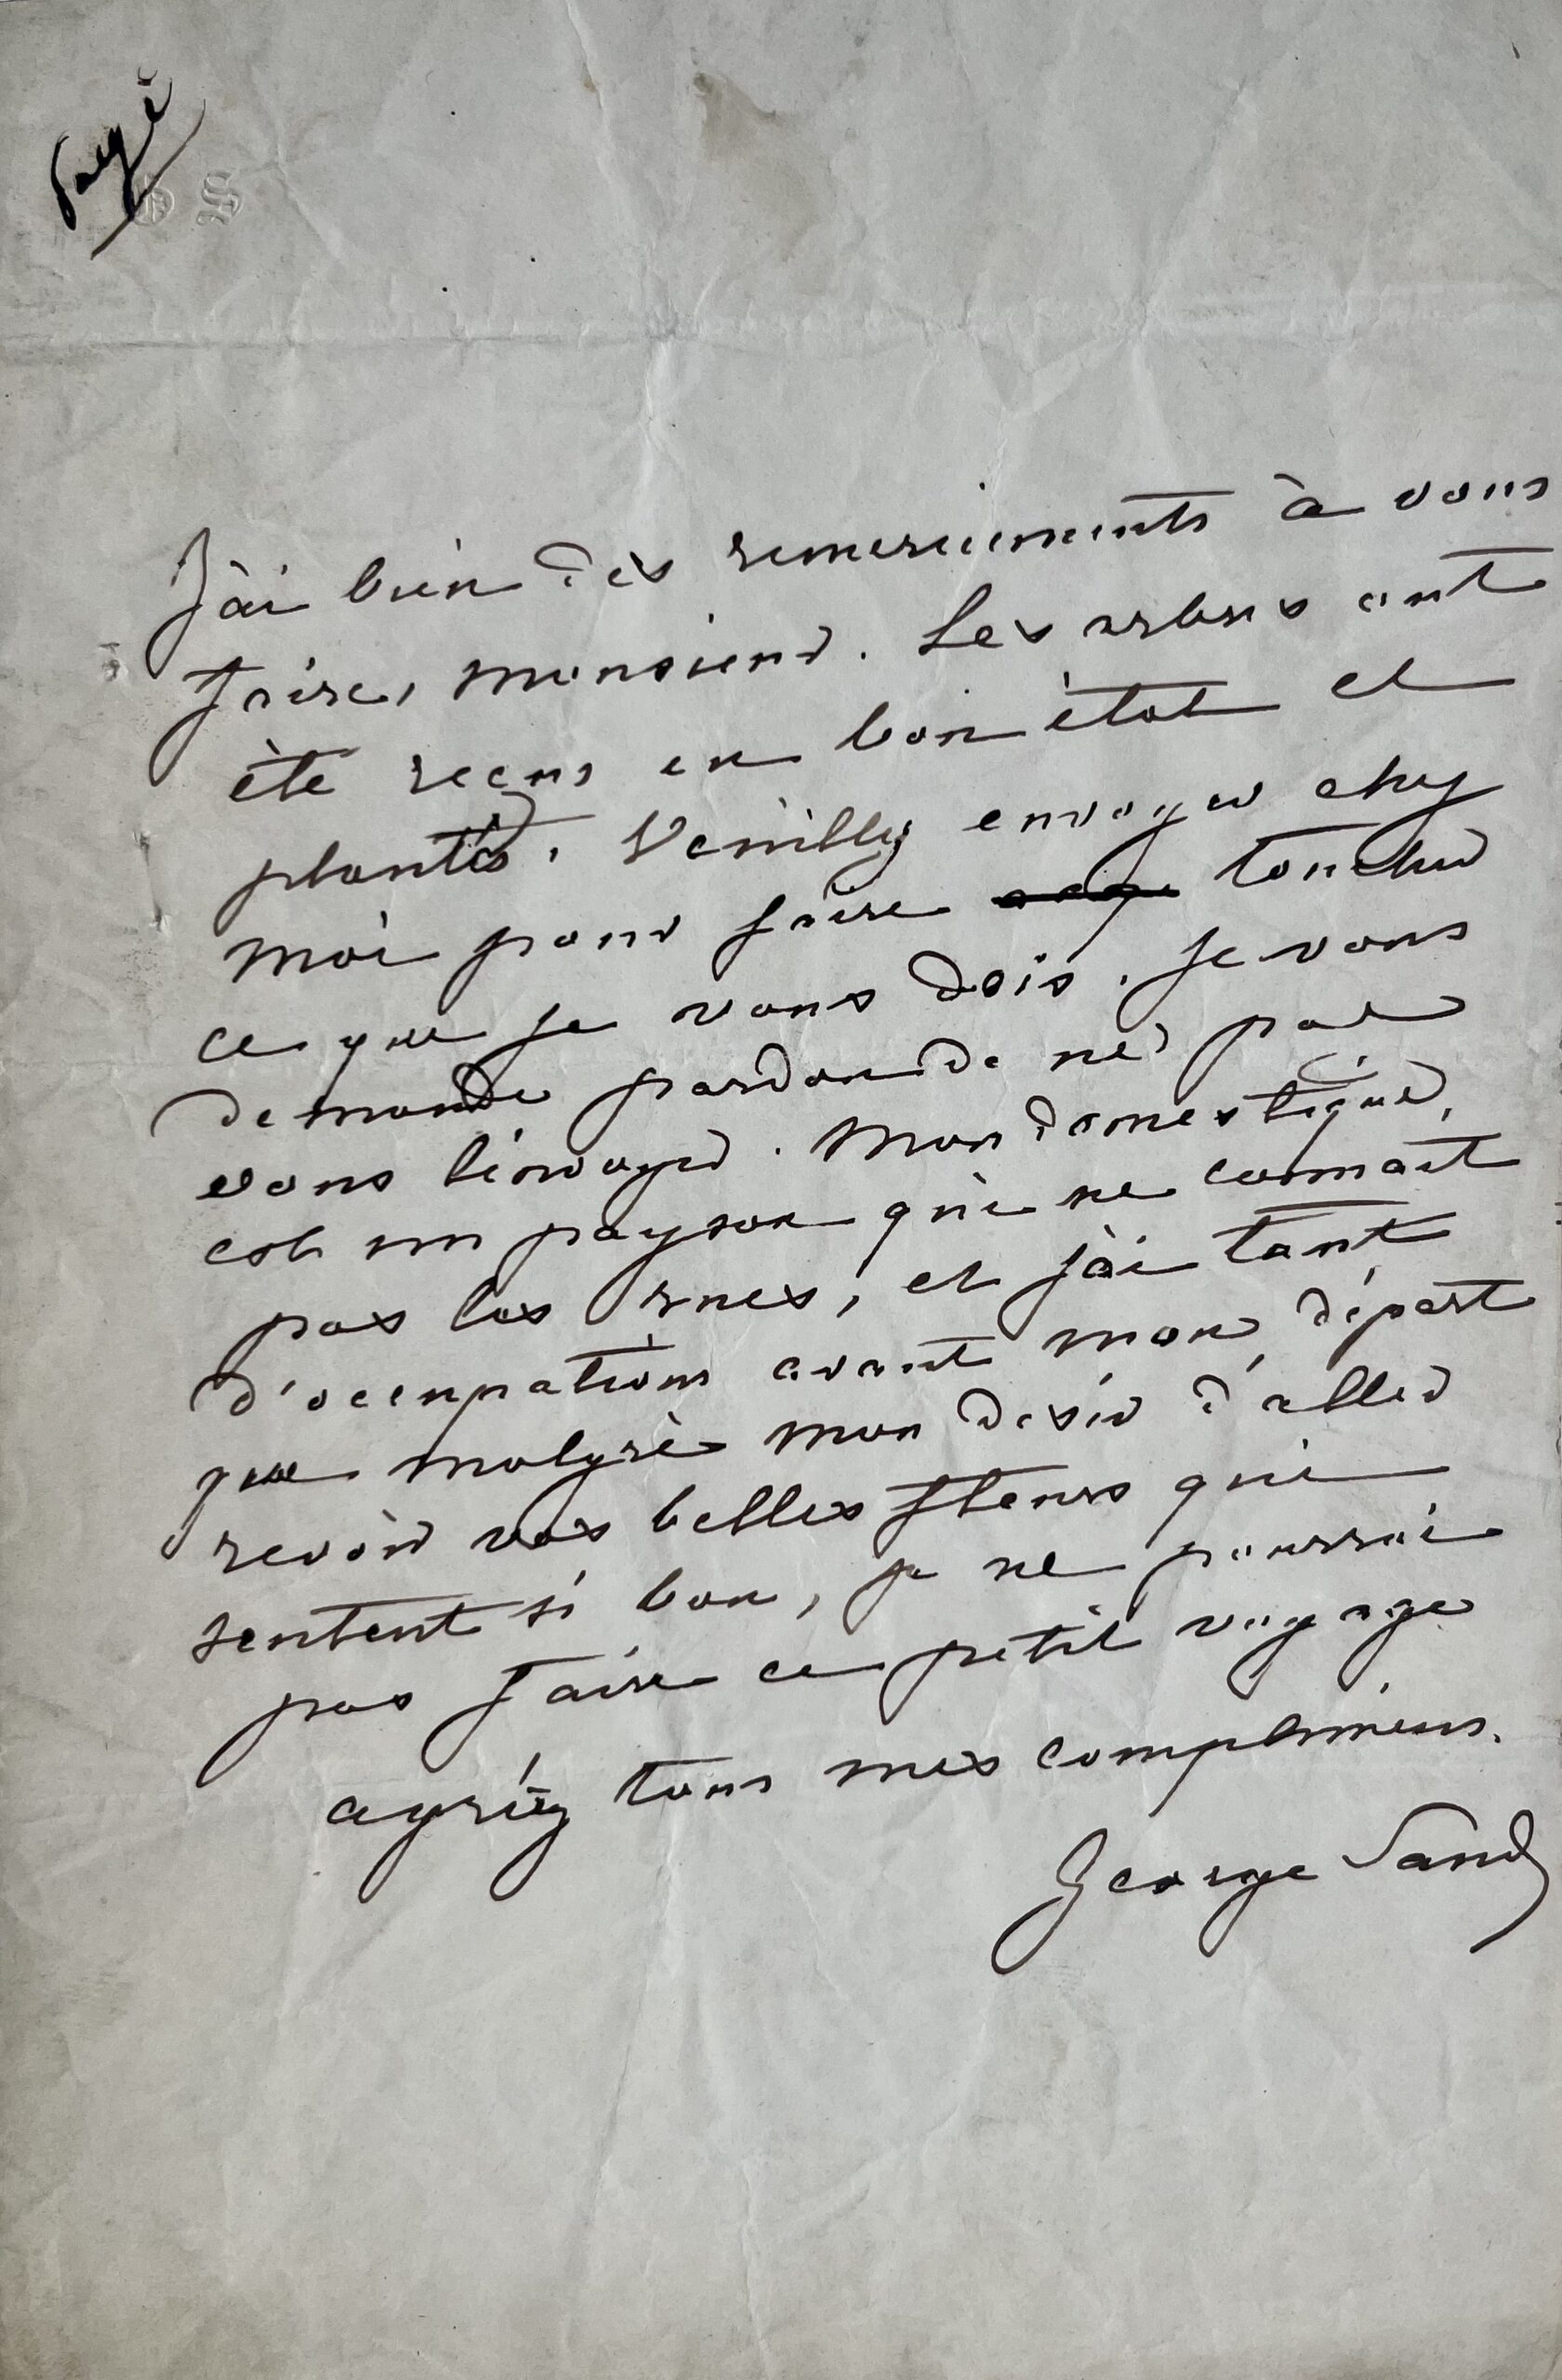 payé
G S
J'ai bien des remerciements à vous
faire, monsieur. Les arbres ont
été reçus en bon état et
plantés. Veuillez envoyer chez
moi pour faire toucher
ce que je vous dois. Je vous
demande pardon de ne pas
vous l'envoyer. Mon domestique
est un paysan qui ne connait
pas les rues, et j'ai tant
d'occupations avant mon départ
que malgré mon desir d'aller
revoir vos belles fleurs qui
sentent si bon, je ne pourrai
pas faire ce petit voyage
agréez tous mes complimens.
George Sand